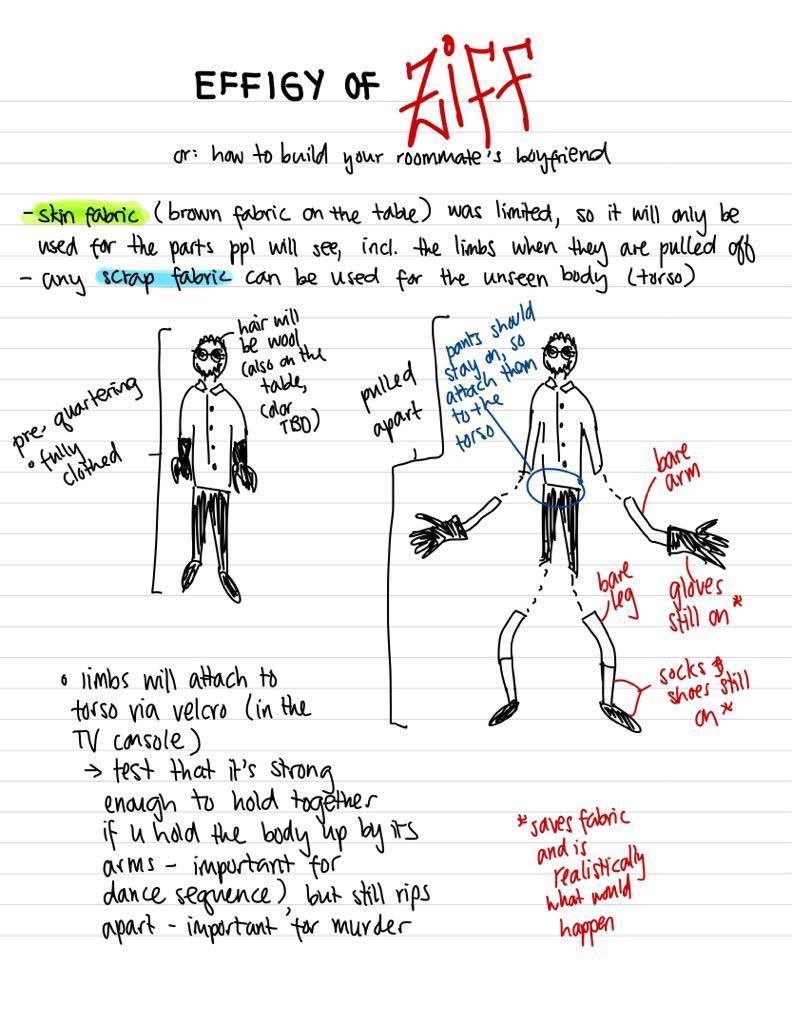 EFFIGY OF ZiFF
or: how to build your roommate's boyfriend
- skin fabric (brown fabric on the table) was limited, so it will only be
used for the parts ppl will see, incl. the limbs when they are pulled off
- any scrap fabric can be used for the unseen body (torso)
pre-quartering
• fully
clothed
hair will
be wool
(also on the
table,
color
TBD)
pulled
apart
pants should
stay on, so
attach them
to the
torso
bare
arm
gloves
still on*
bare
leg
socks &
shoes still
on*
• limbs will attach to
torso via velcro (in the
TV console)
→ test that it's strong
enough to hold together
if u hold the body up by its
arms - important for
dance sequence) but still rips
apart - important for murder
*saves fabric
and is
realistically
what would
happen